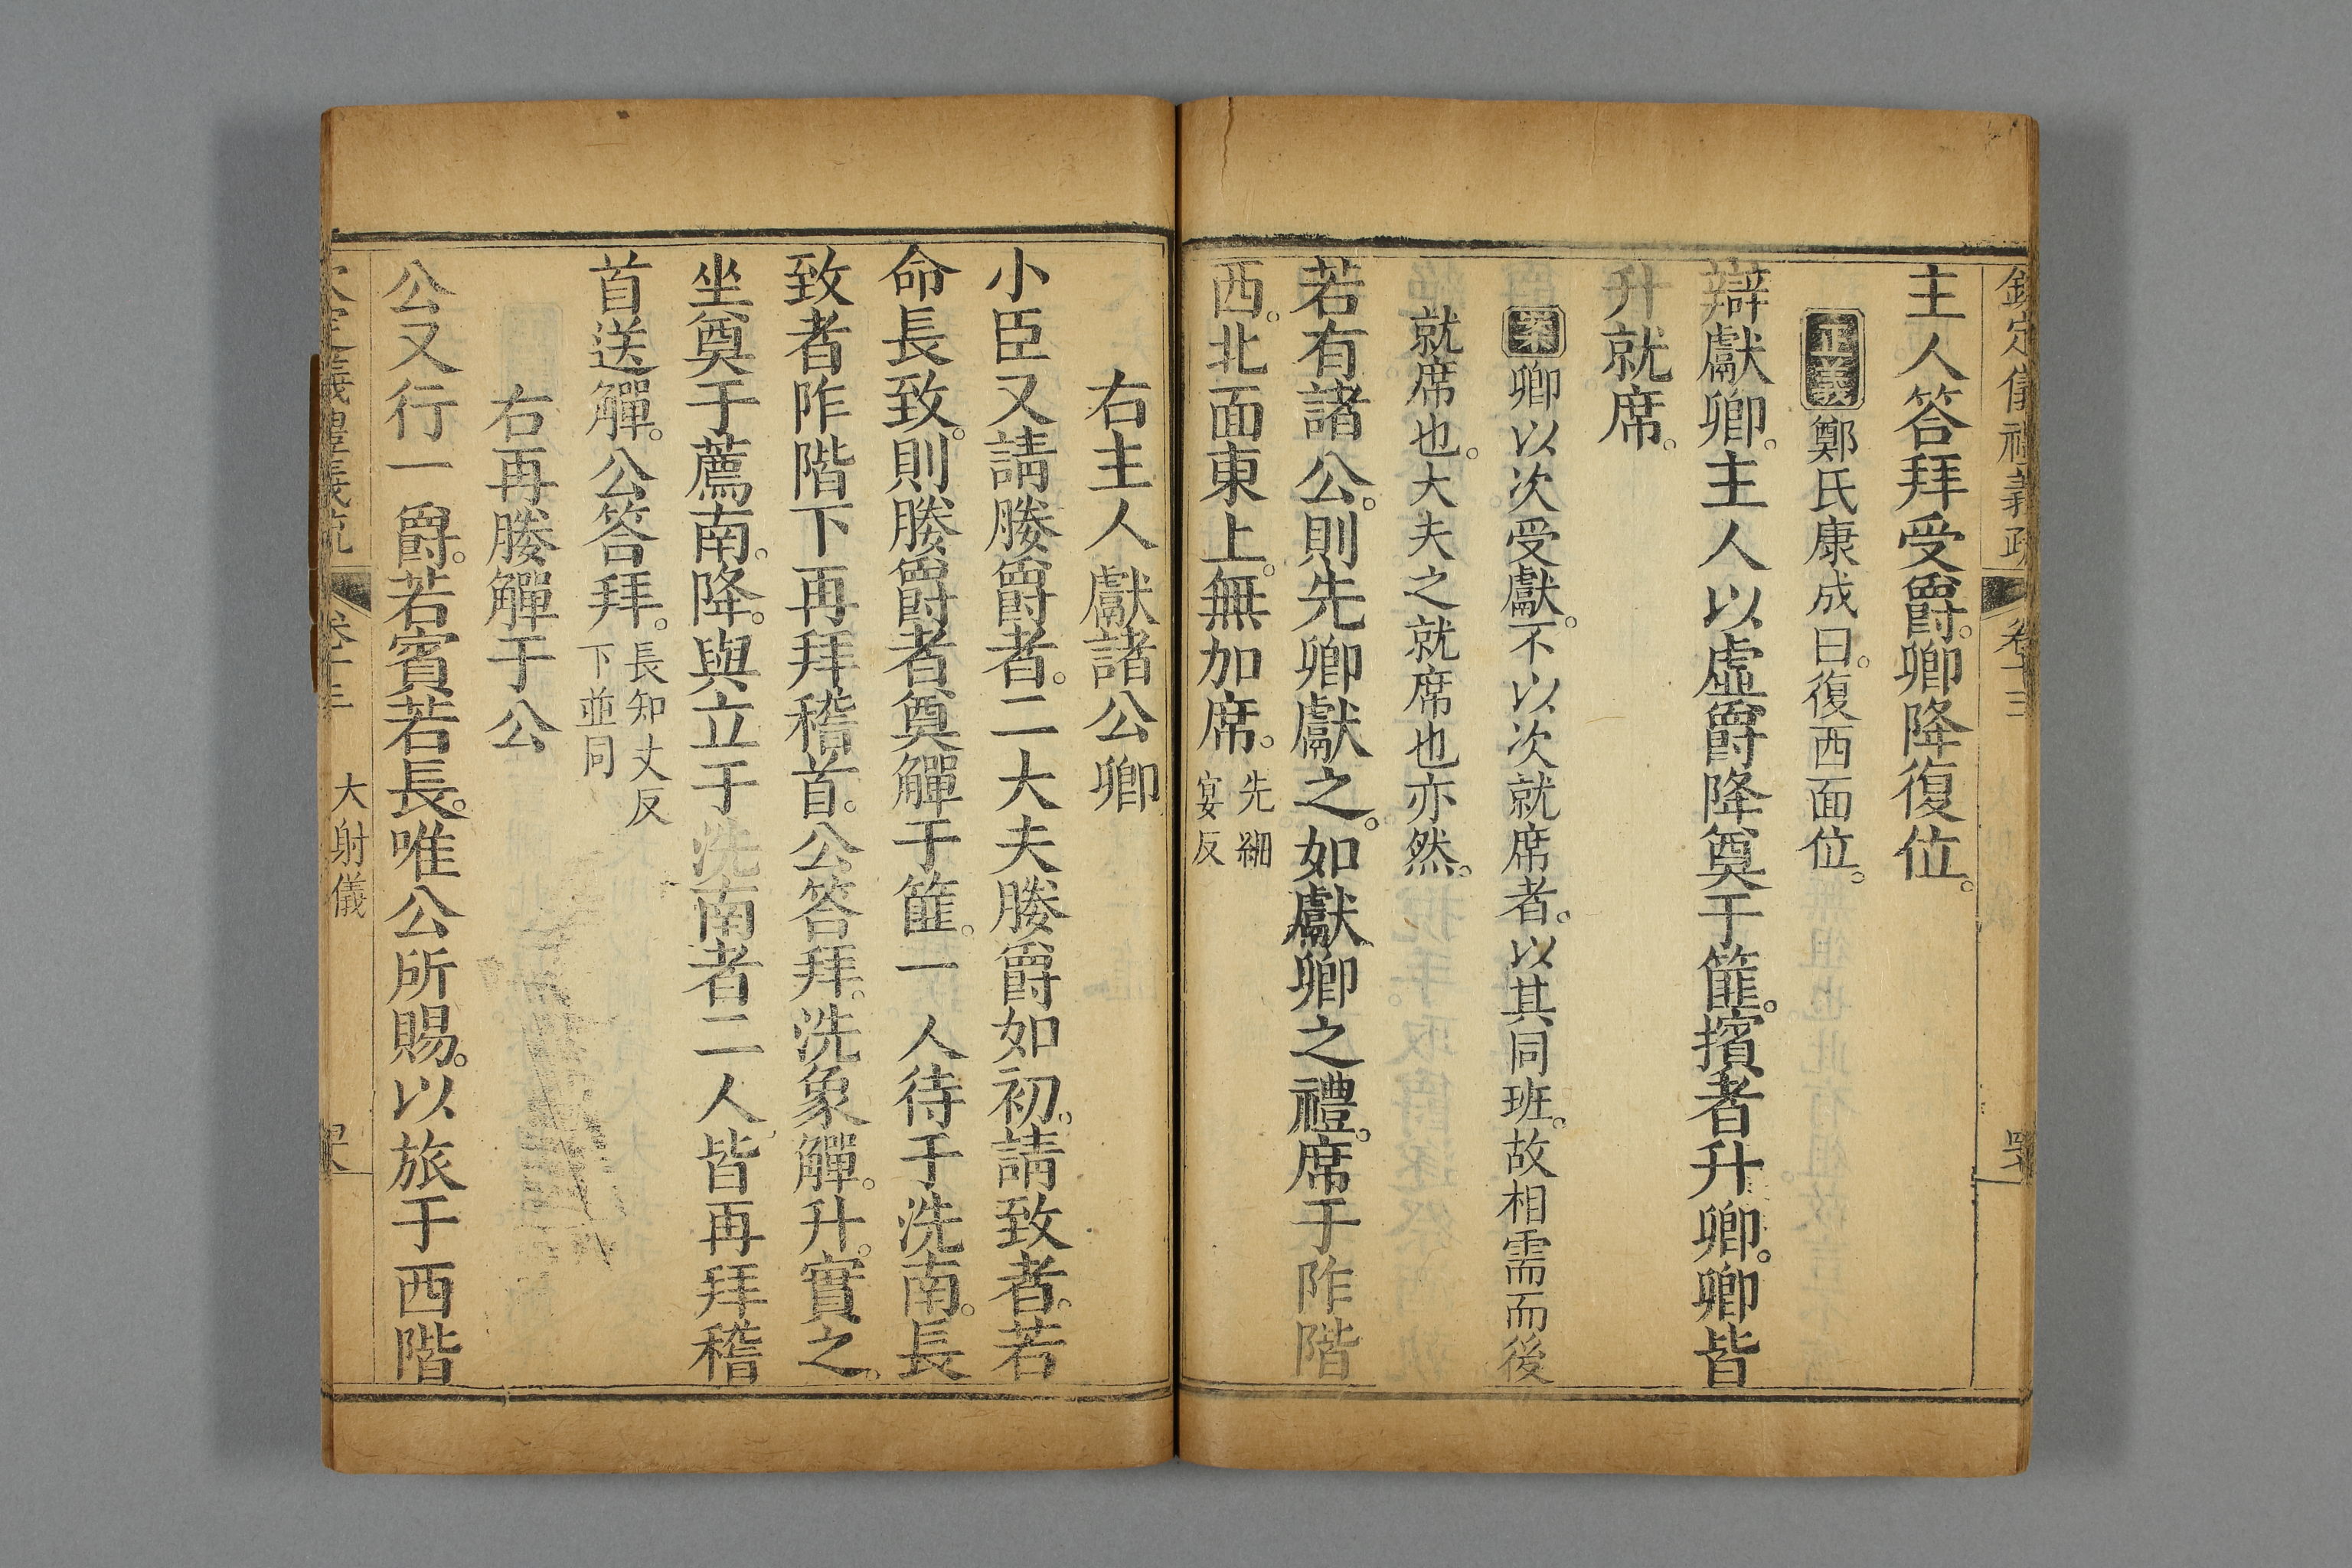 欽定儀禮義疏 卷十三
主人答拜受爵。卿降復位。
正義 鄭氏康成曰。復西面位。
辯獻卿。主人以虛爵降奠于篚。擯者升卿。卿皆
升就席。
案 卿以次受獻。不以次就席者。以其同班。故相需而後
就席也。大夫之就席也亦然。
若有諸公。則先卿獻之。如獻卿之禮。席于阼階
西。北面東上。無加席。
先細
宴反
右主人獻諸公卿
小臣又請媵爵者。二大夫媵爵如初。請致者。若
命長致。則媵爵者奠觶于篚。一人待于洗南。長
致者阼階下再拜稽首。公答拜。洗象觶。升。實之。
坐奠于薦南。降。與立于洗南者二人皆再拜稽
首送觶。公答拜。
長知丈反
下並同
右再媵觶于公
公又行一爵。若賓若長。唯公所賜。以旅于西階
欽定儀禮義疏 卷十三 大射儀